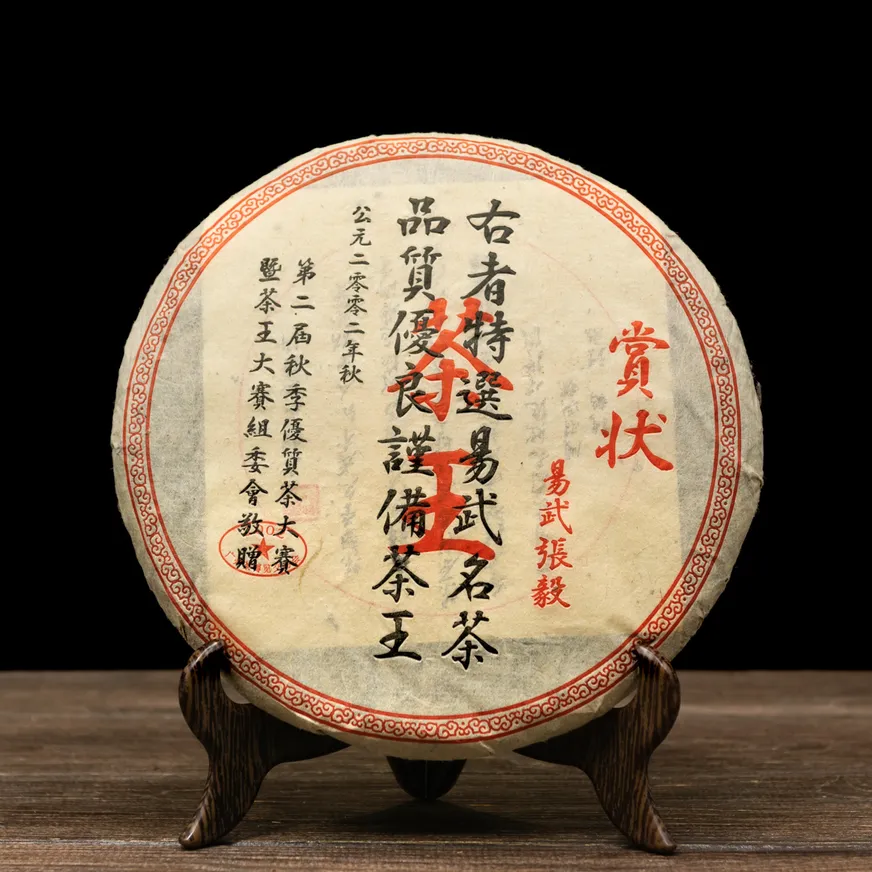 賞状
易武張毅
右者特選易武名茶
品質優良謹備茶王
茶王
公元二零零二年秋
第二屆秋季優質茶大賽
暨茶王大賽組委會敬贈